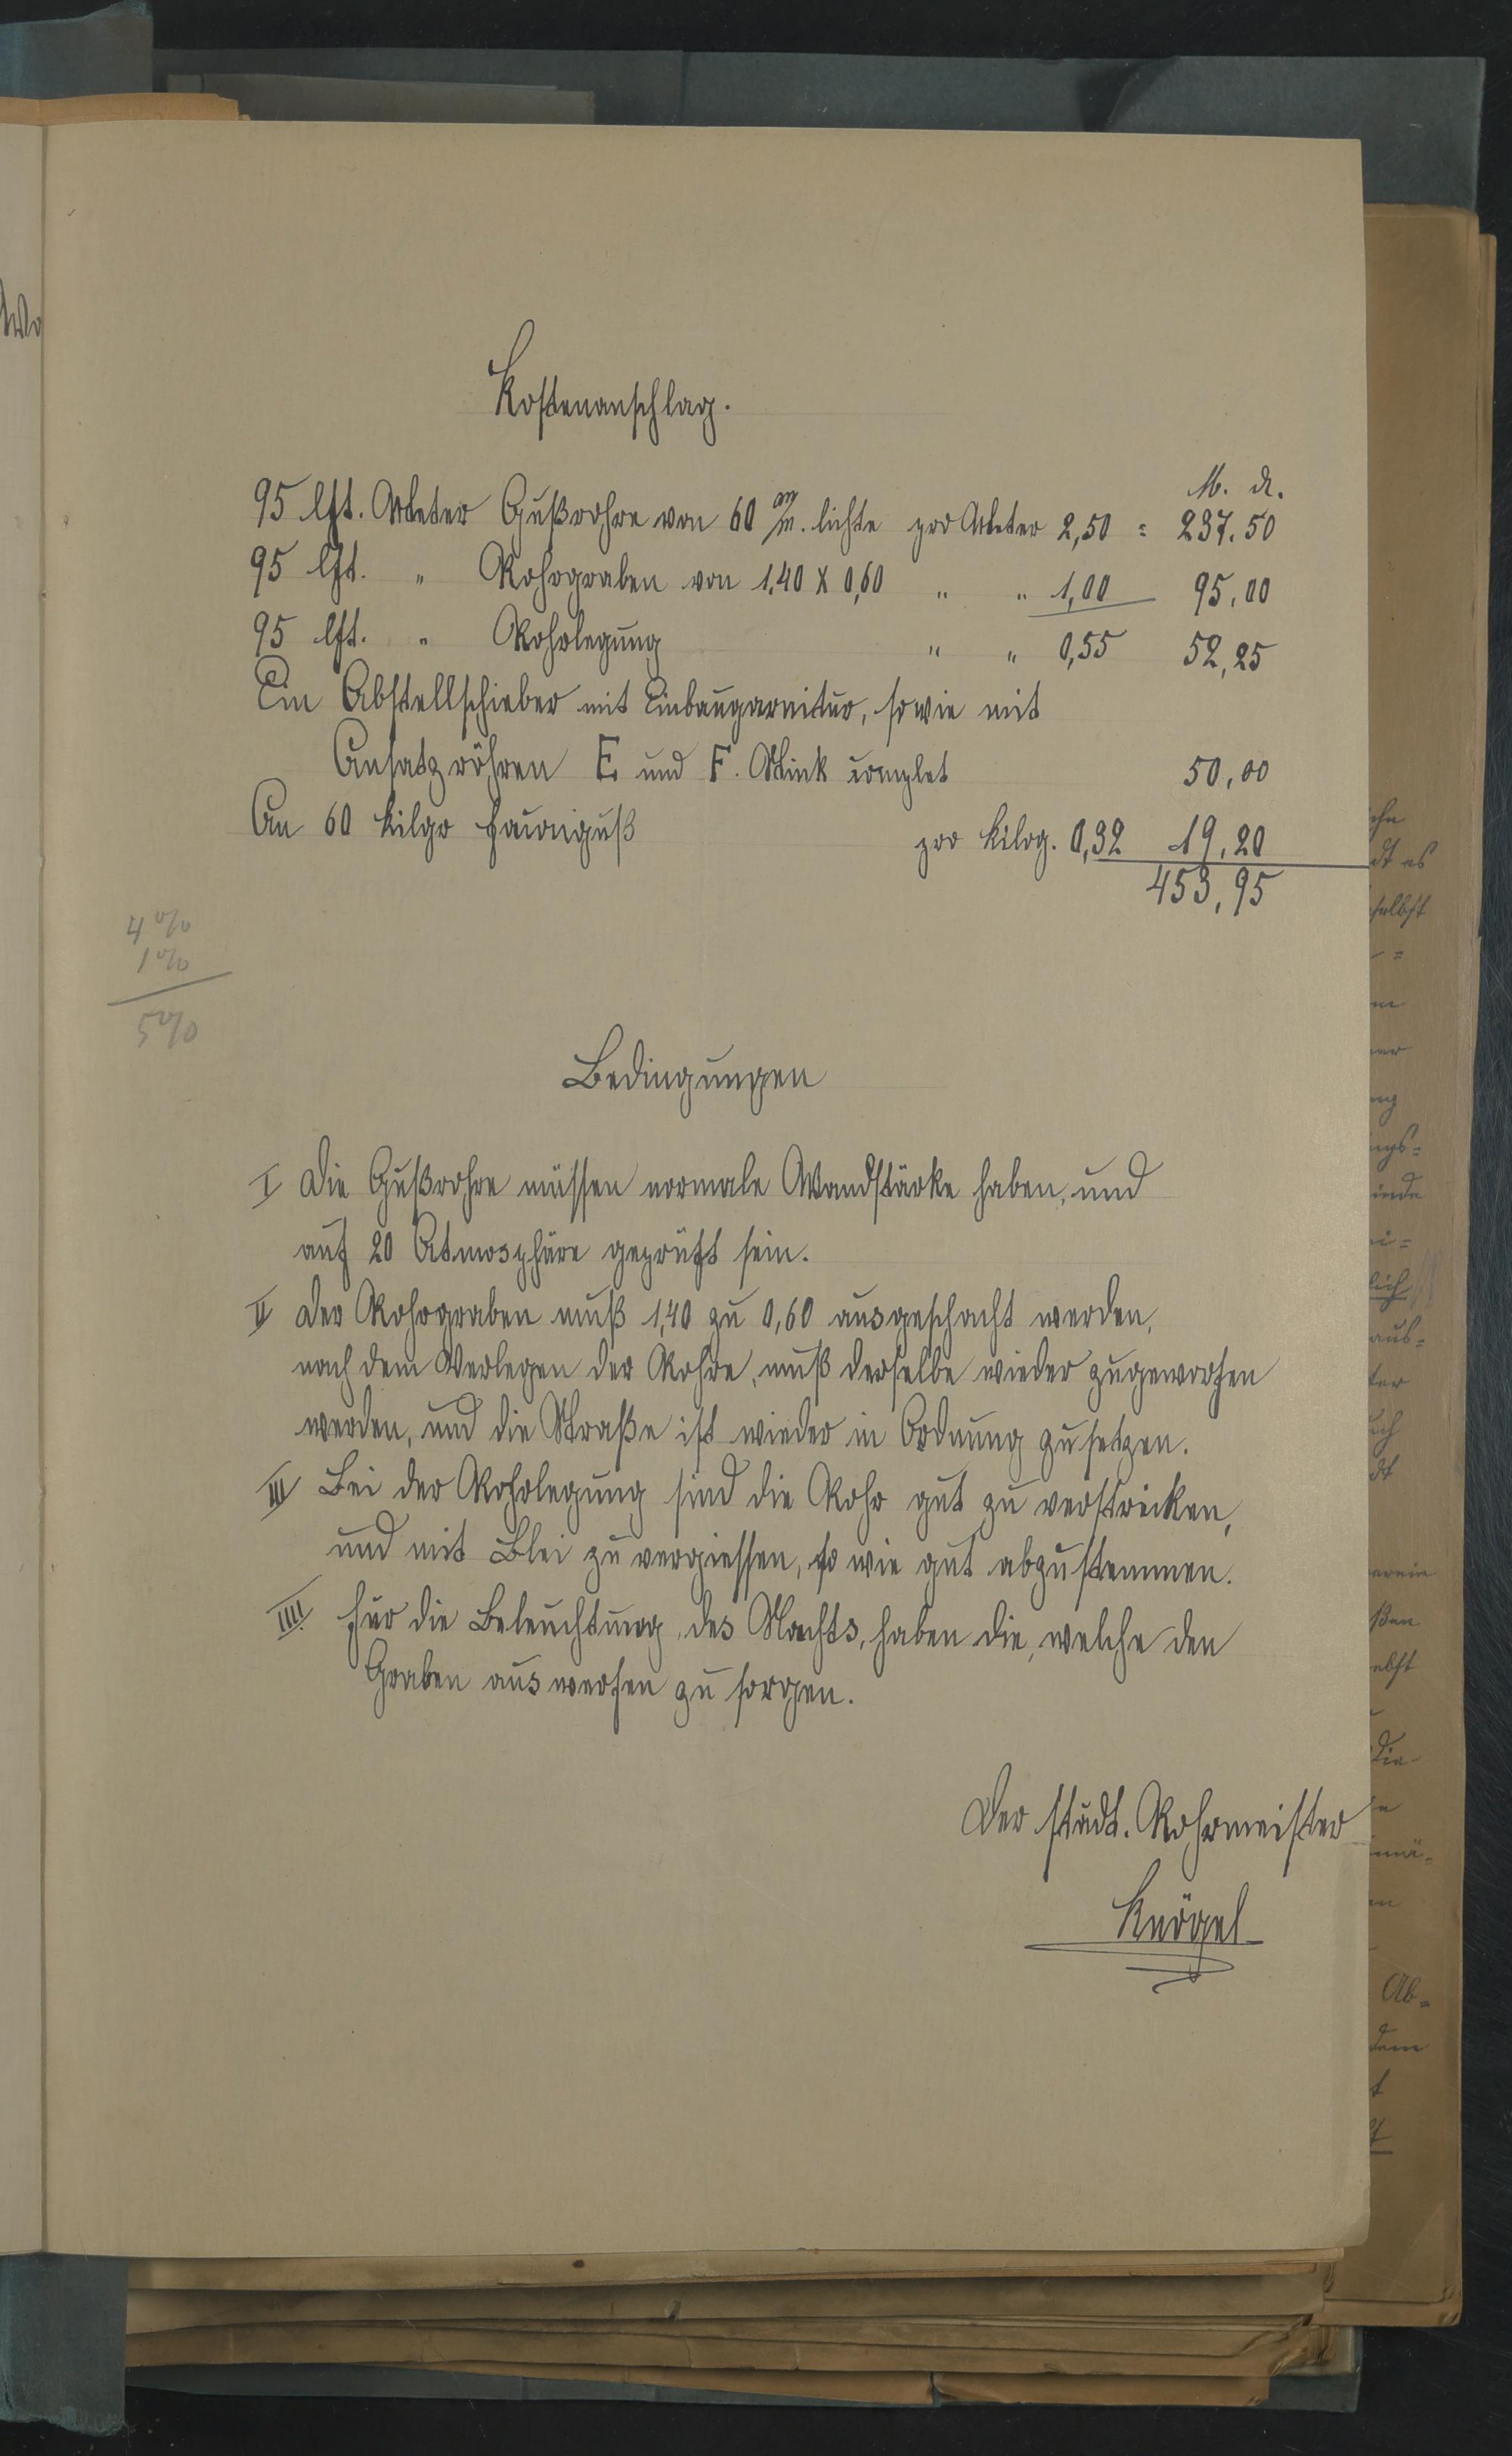 Kostenanschlag.
M. d.
95 lft. Meter Gußrohre von 60 m/m. lichte pro Meter 2,50 = 237.50
95 lft. " Rohrgraben von 1,40 x 0,60 " " 1,00 95,00
95 lft. " Rohrlegung " " 0,55 52,25
Ein Abstellschieber mit Einbaugarnitur, sowie mit
Ansatzröhren E und F. Stück complet 50,00
An 60 Kilgr façonguß pro Kilog. 0,32 19,20
453,95
4%
1%
5%
Bedingungen
I Die Gußrohre müssen normale Wandstärke haben, und
auf 20 Atmosphäre geprüft sein.
II Der Rohrgraben muß 1,40 zu 0,60 ausgeschacht werden,
nach dem Verlegen der Rohre, muß derselbe wieder zugeworfen
werden, und die Straße ist wieder in Ordnung zu setzen.
III Bei der Rohrlegung sind die Rohr gut zu verstricken,
und mit Blei zu vergiessen, so wie gut abzustemmen.
IIII. Für die Beleuchtung, des Nachts, haben die, welche den
Graben auswerfen zu sorgen.
Der städt. Rohrmeister
Knögel